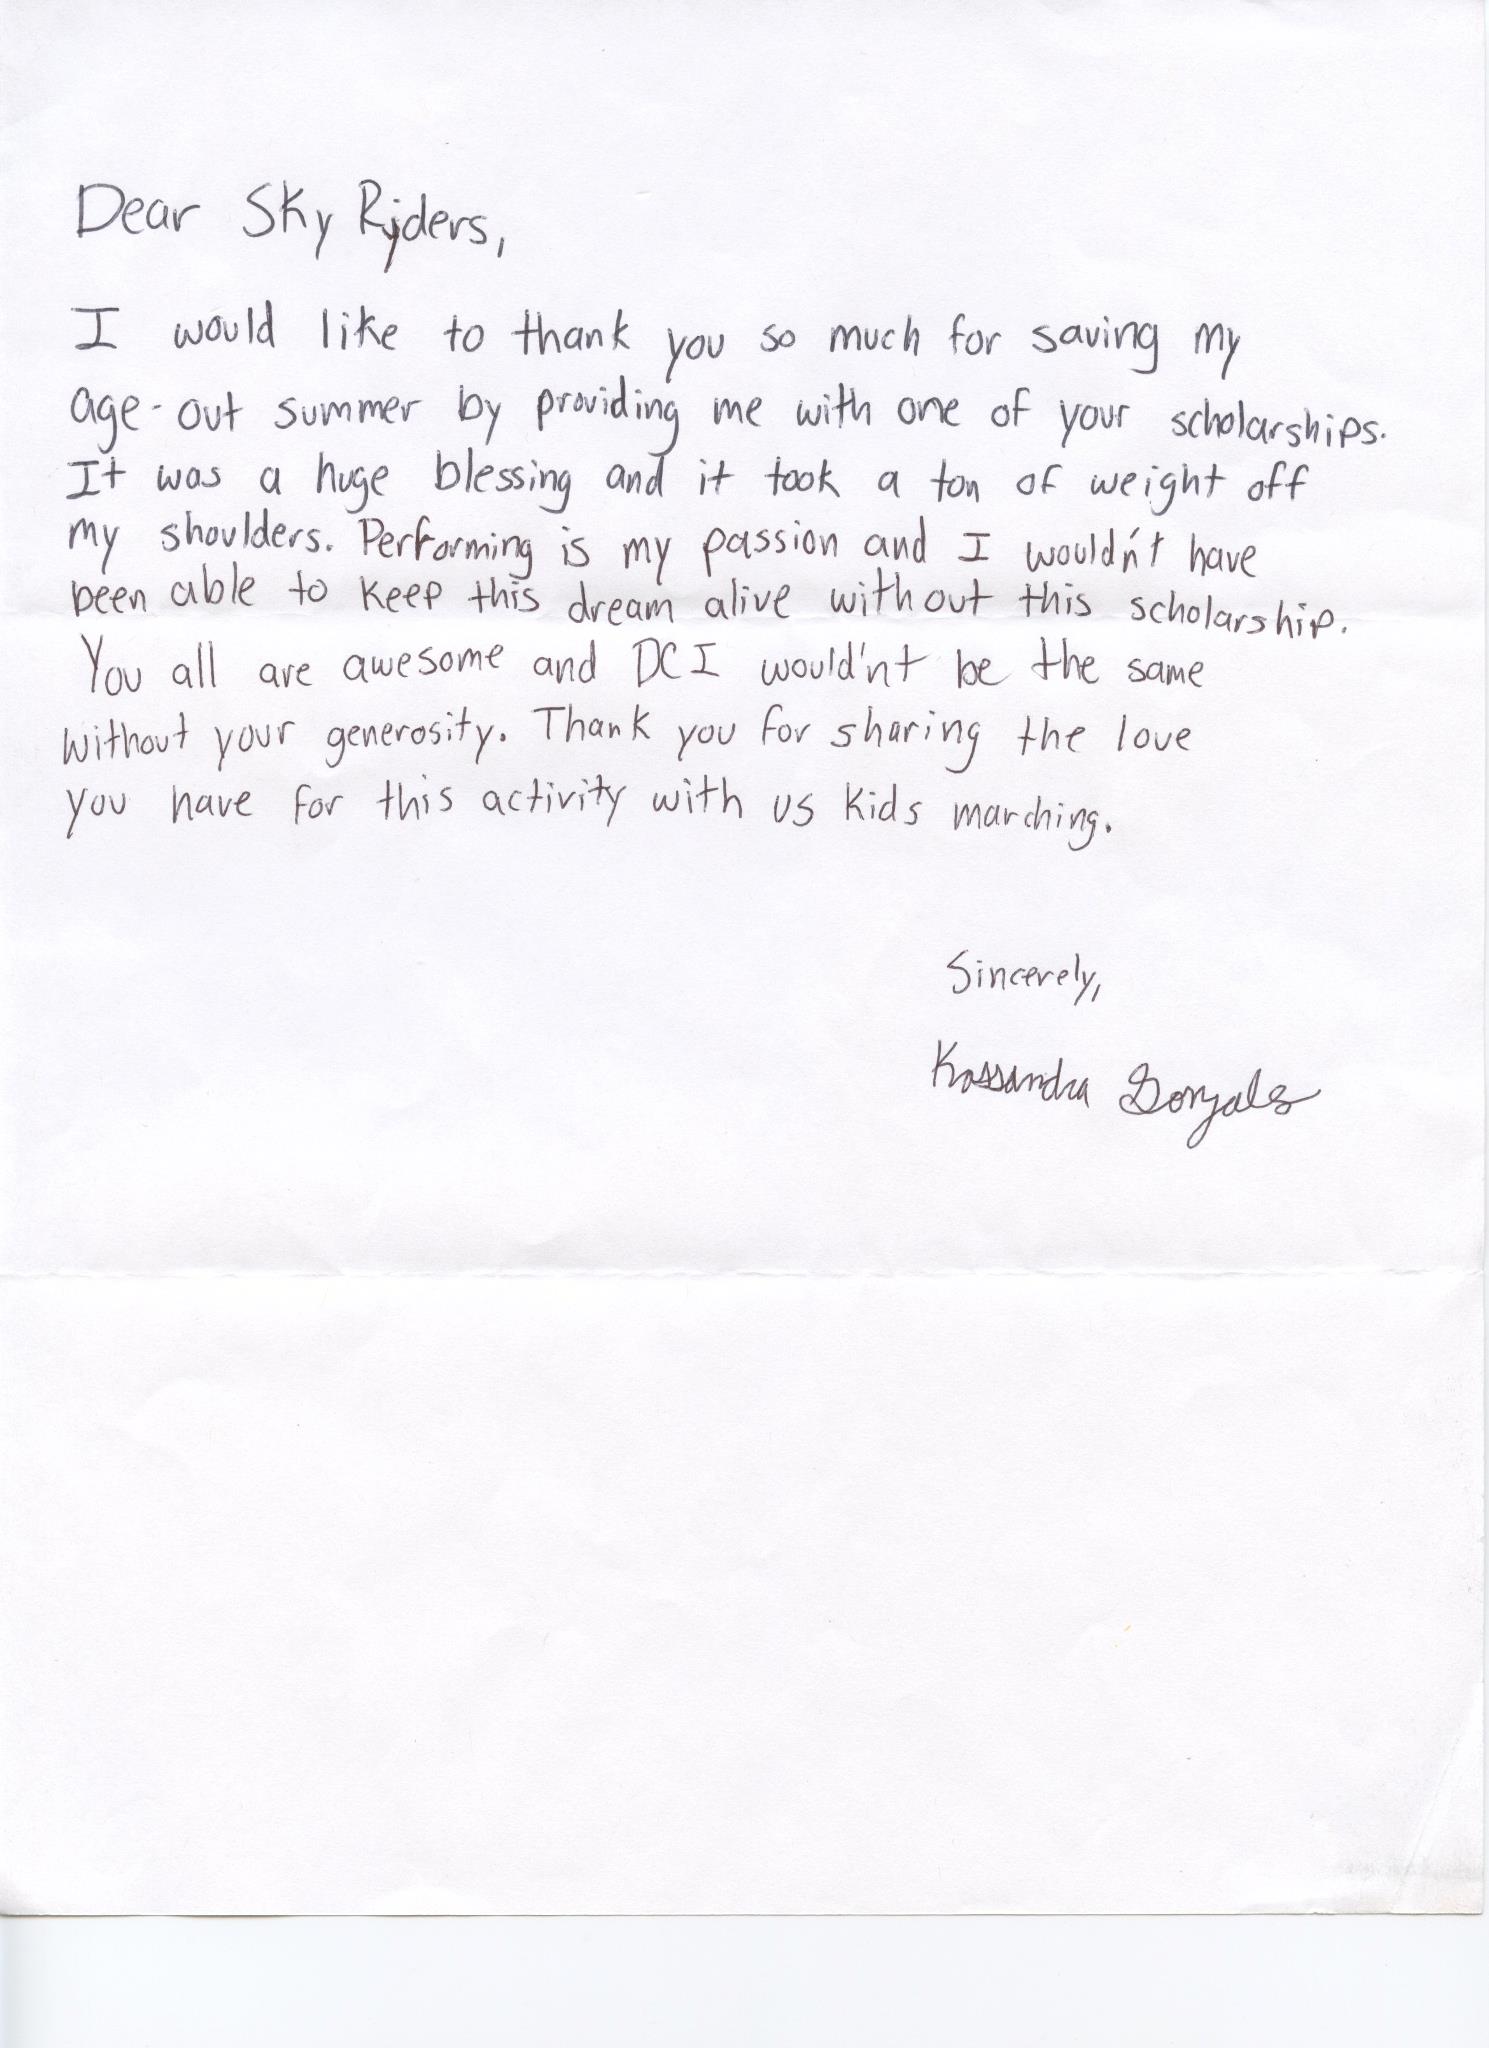 Dear Sky Ryders,
I would like to thank you so much for saving my
age-out summer by providing me with one of your scholarships.
It was a huge blessing and it took a ton of weight off
my shoulders. Performing is my passion and I wouldn't have
been able to keep this dream alive without this scholarship.
You all are awesome and DCI would'nt be the same
without your generosity. Thank you for sharing the love
you have for this activity with us kids marching.
Sincerely,
Kassandra Gonzales